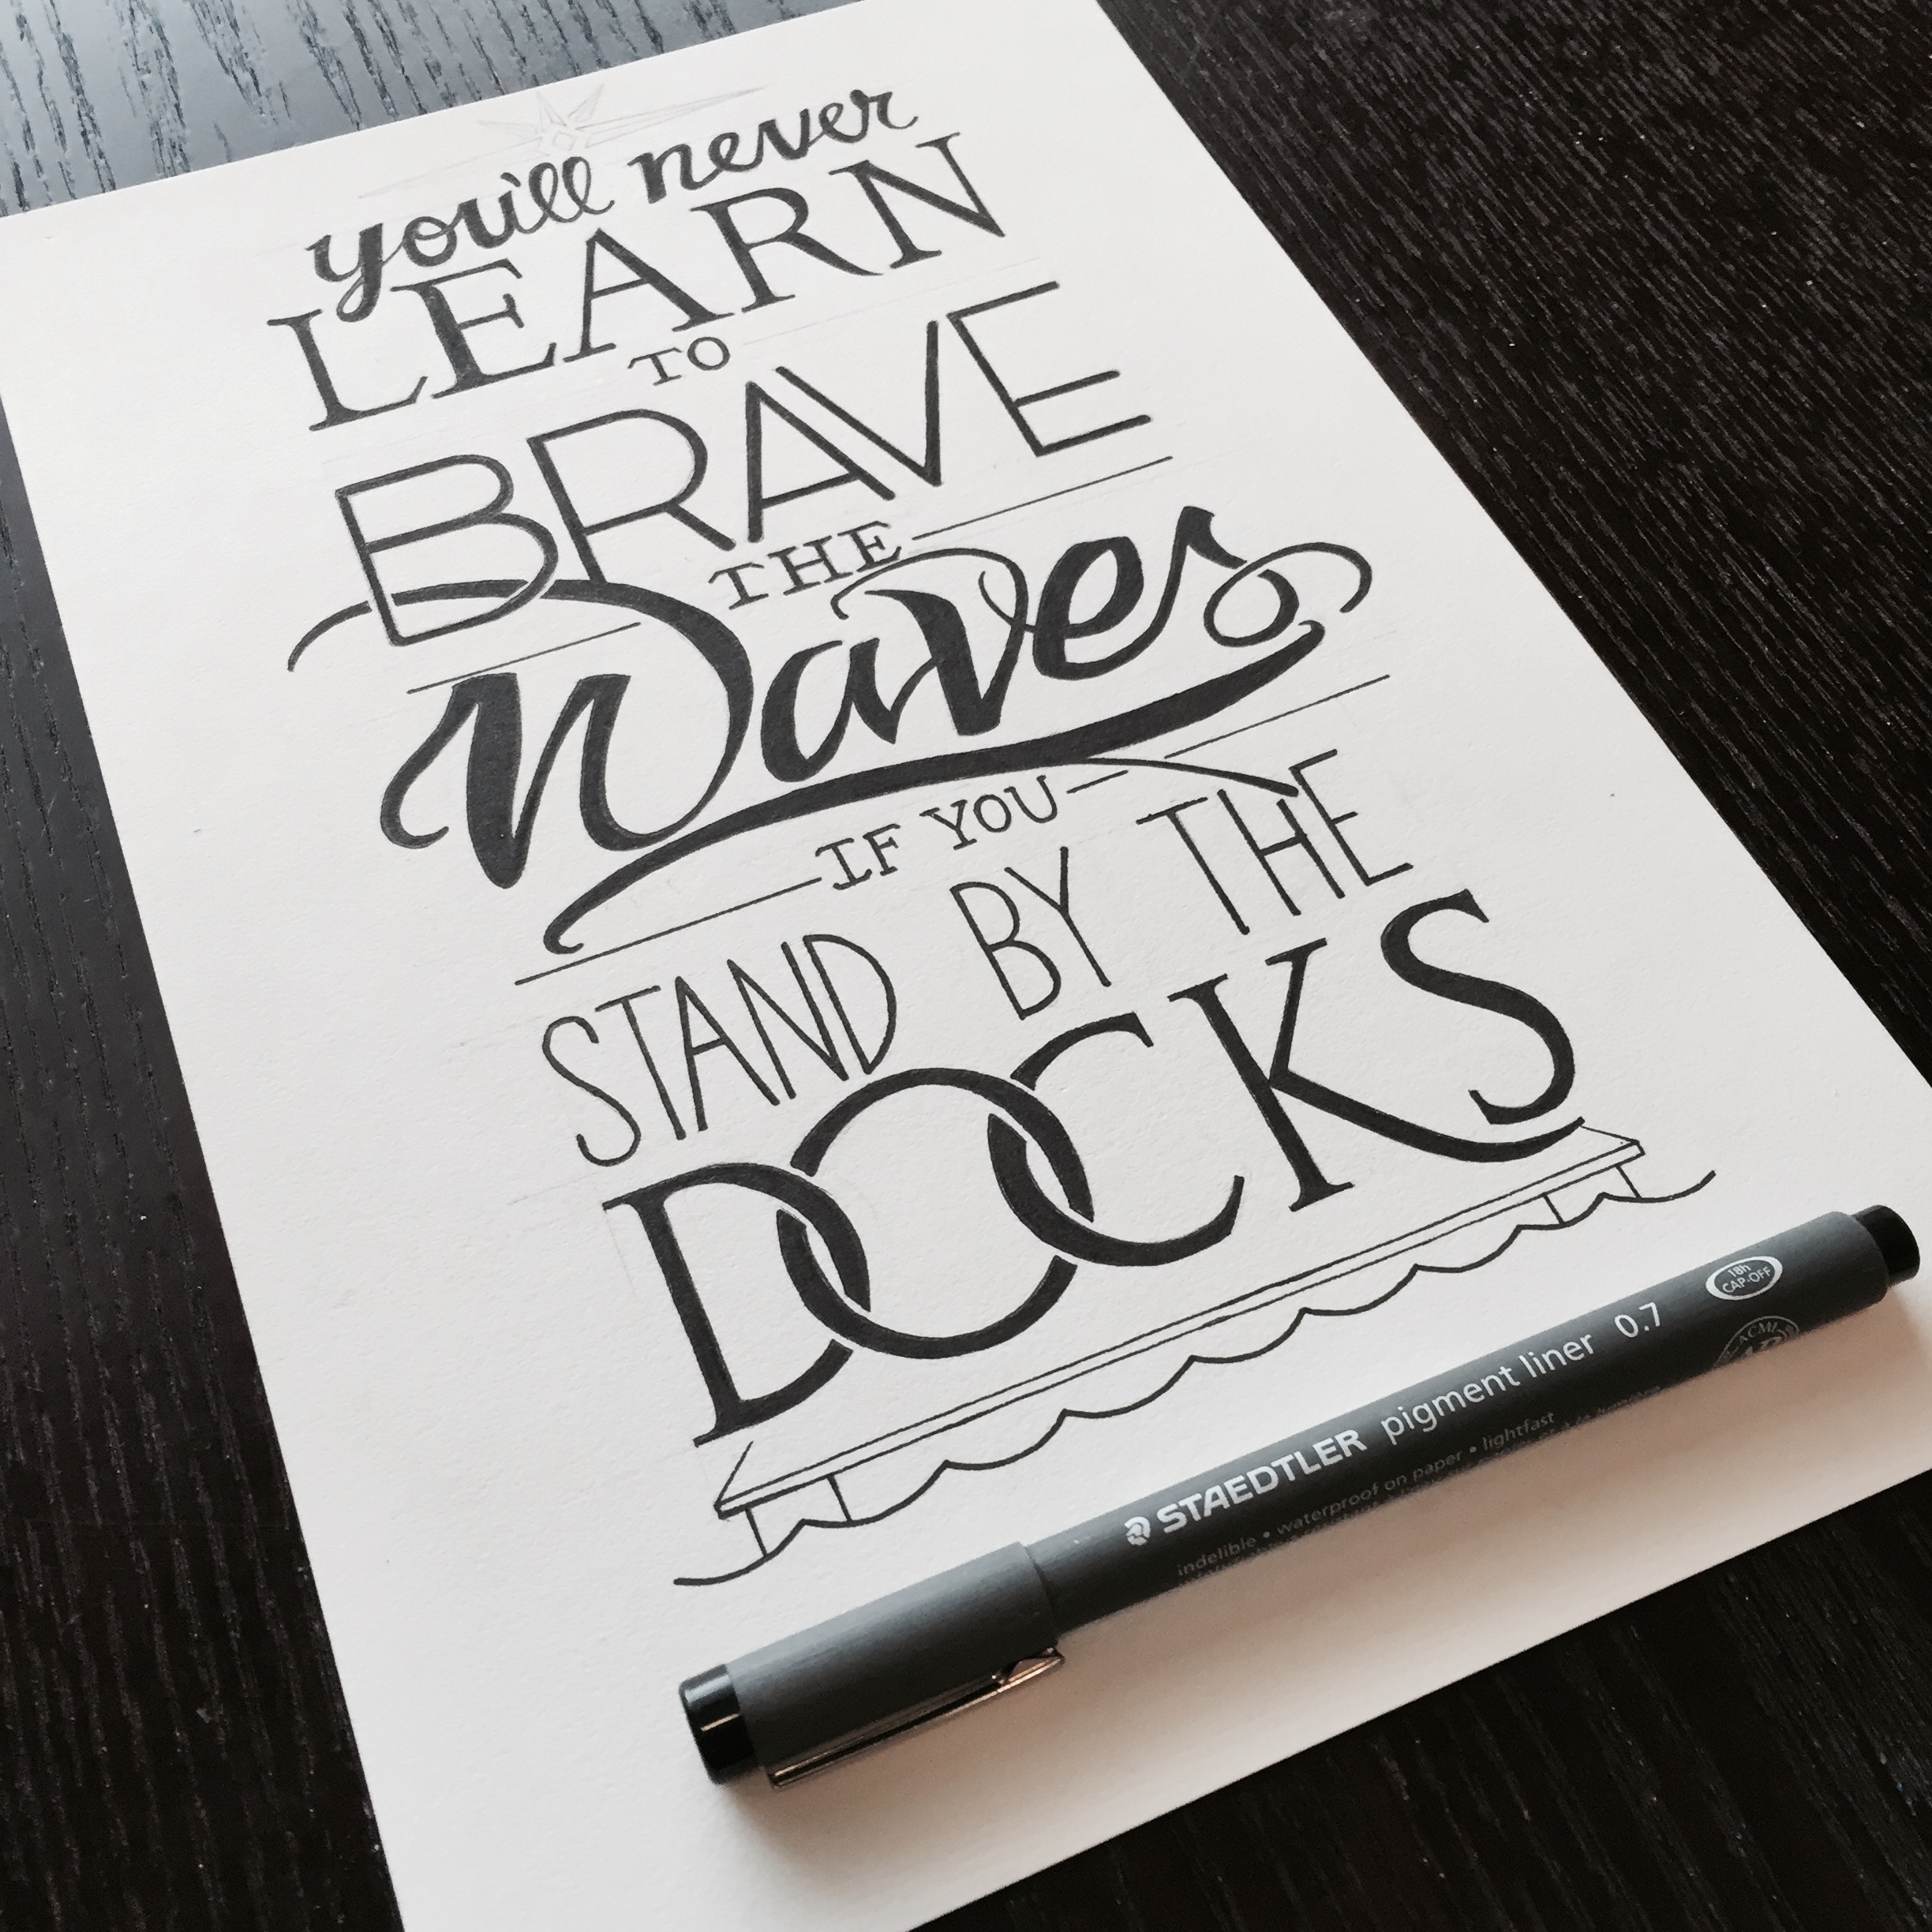 you'll never
LEARN
TO
BRAVE
THE
Waves
IF YOU
STAND BY THE
DOCKS
STAEDTLER pigment liner 0.7
18h
CAP-OFF
ACMI
indelible • waterproof on paper • lightfast